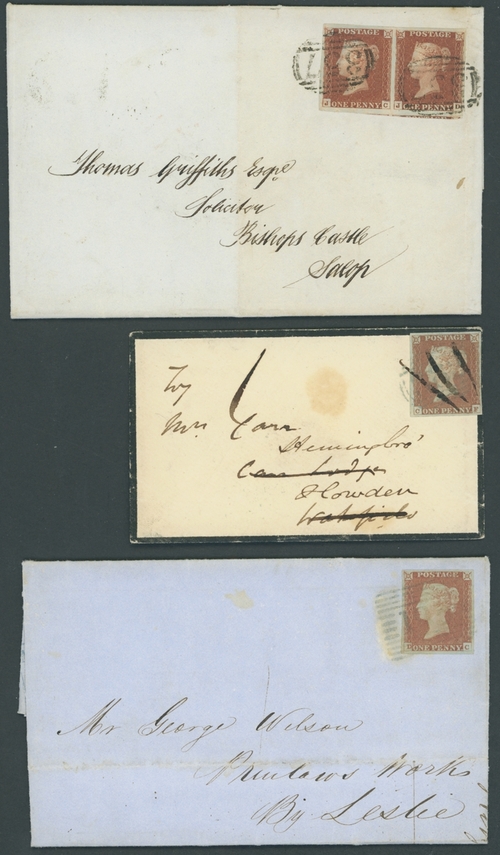 POSTAGE POSTAGE
ONE PENNY ONE PENNY
Thomas Griffiths Esqre
Solicitor
Bishops Castle
Salop
POSTAGE
ONE PENNY
Try
Mrs Carr
Heminbro'
Carr Lodge
Howden
Wakefield
POSTAGE
ONE PENNY
Mr George Wilson
Prinlaws Works
By Leslie